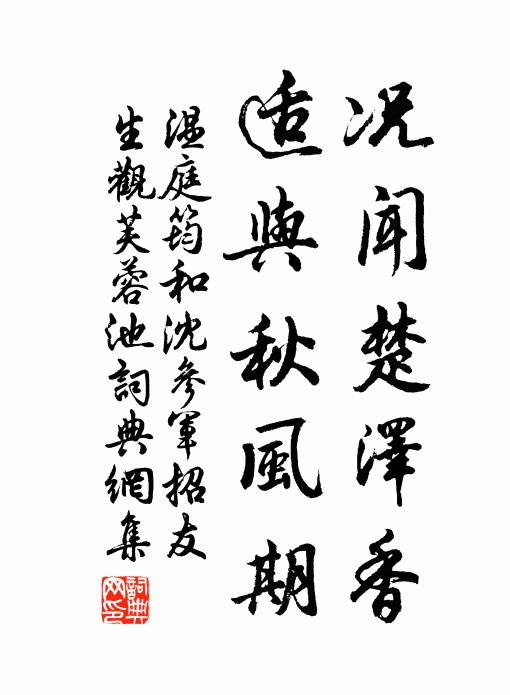 况聞楚澤香
适與秋風期
温庭筠和沈參軍招友
生觀芙蓉池詞典網集
詞典
网印